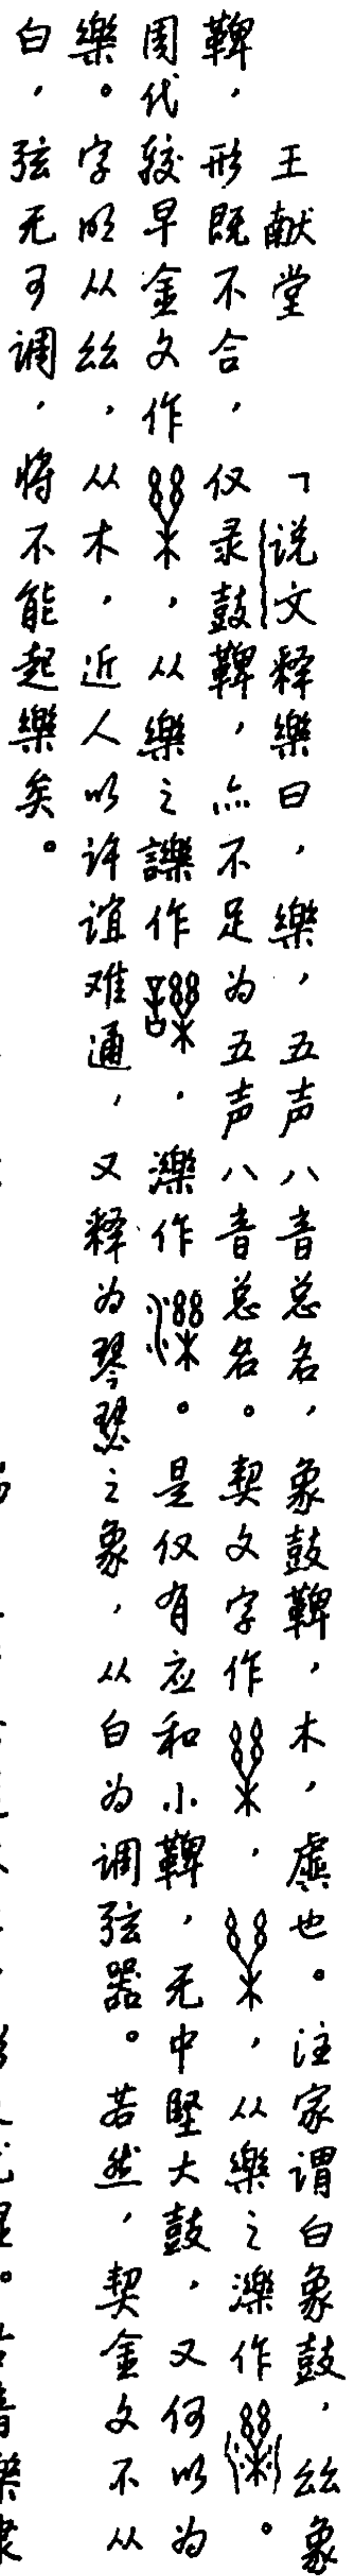 王献堂 「说文释樂曰，樂，五声八音总名，象鼓鞞，木，虡也。注家谓白象鼓，丝象
鞞，形既不合，仅录鼓鞞，亦不足为五声八音总名。契文字作，，从樂之濼作。
周代较早金文作，从樂之讙作，濼作。是仅有应和小鞞，无中堅大鼓，又何以为
樂。字明从丝，从木，近人以许谊难通，又释为琴瑟之象，从白为调弦器。若然，契金文不从
白，弦无可调，将不能起樂矣。